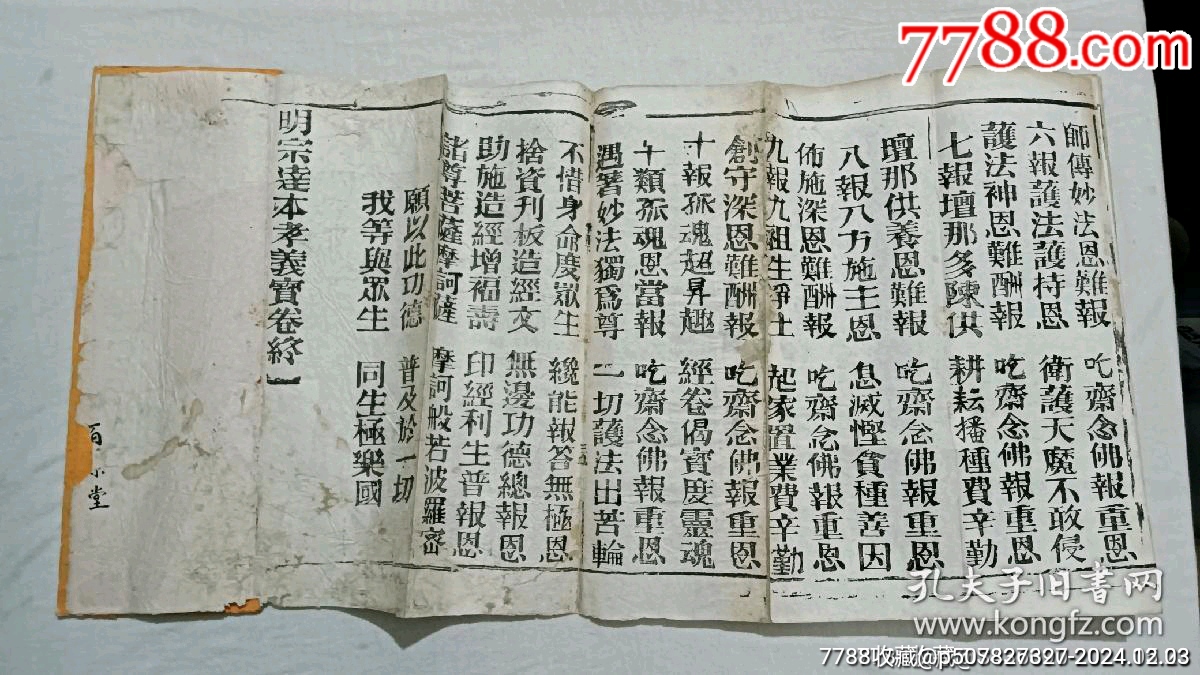 7788.com
師傳妙法恩難報　吃齋念佛報重恩
六報護法護持恩　衛護天魔不敢侵
護法神恩難酬報　吃齋念佛報重恩
七報壇那多陳供　耕耘播種費辛勤
壇那供養恩難報　吃齋念佛報重恩
八報八方施主恩　息滅慳貪種善因
佈施深恩難酬報　吃齋念佛報重恩
九報九祖生淨土　起家置業費辛勤
創守深恩難酬報　吃齋念佛報重恩
十報孤魂超昇趣　經卷偈寶度靈魂
十類孤魂恩當報　吃齋念佛報重恩
遇著妙法獨爲尊　一切護法出苦輪
不惜身命度眾生　纔能報答無極恩
捨資刊板造經文　無邊功德總報恩
助施造經增福壽　印經利生普報恩
諸尊菩薩摩訶薩　摩訶般若波羅密
願以此功德　普及於一切
我等與眾生　同生極樂國
明宗達本孝義寶卷終
堂
孔夫子旧书网
www.kongfz.com
7788收藏@p507827327-2024.12.03